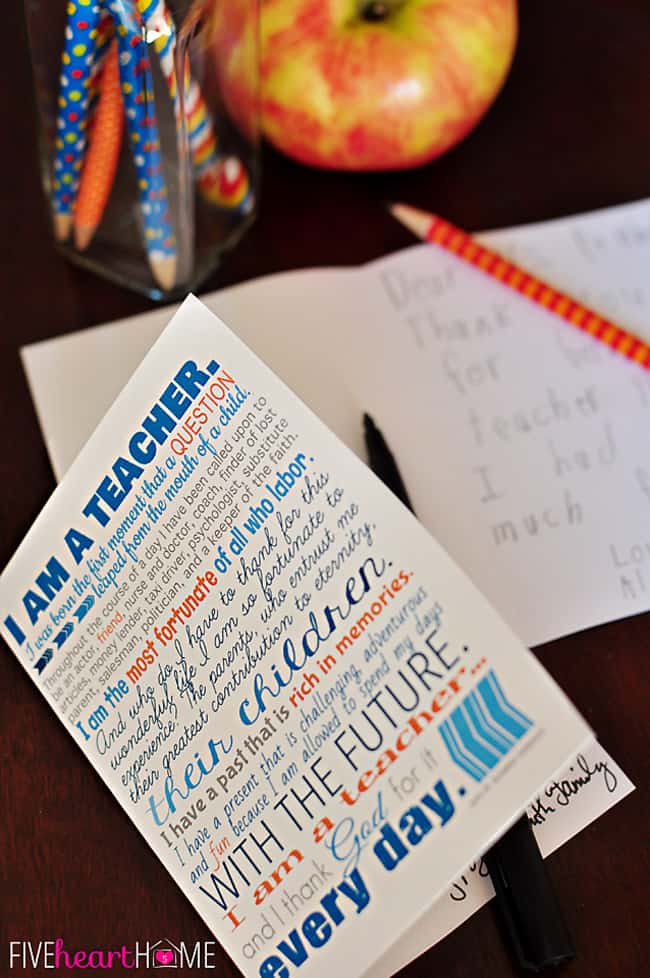 I AM A TEACHER.
I was born the first moment that a QUESTION
leaped from the mouth of a child.
Throughout the course of a day I have been called upon to
be an actor, friend, nurse and doctor, coach, finder of lost
articles, money lender, taxi driver, psychologist, substitute
parent, salesman, politician, and a keeper of the faith.
I am the most fortunate of all who labor.
And who do I have to thank for this
wonderful life I am so fortunate to
experience? The parents who entrust me
their greatest contribution to eternity,
their children.
I have a past that is rich in memories.
I have a present that is challenging, adventurous
and fun because I am allowed to spend my days
WITH THE FUTURE.
I am a teacher...
and I thank God for it
every day.
Dear
Thank you
for
teacher
I had
much
family
FIVEheartHOME